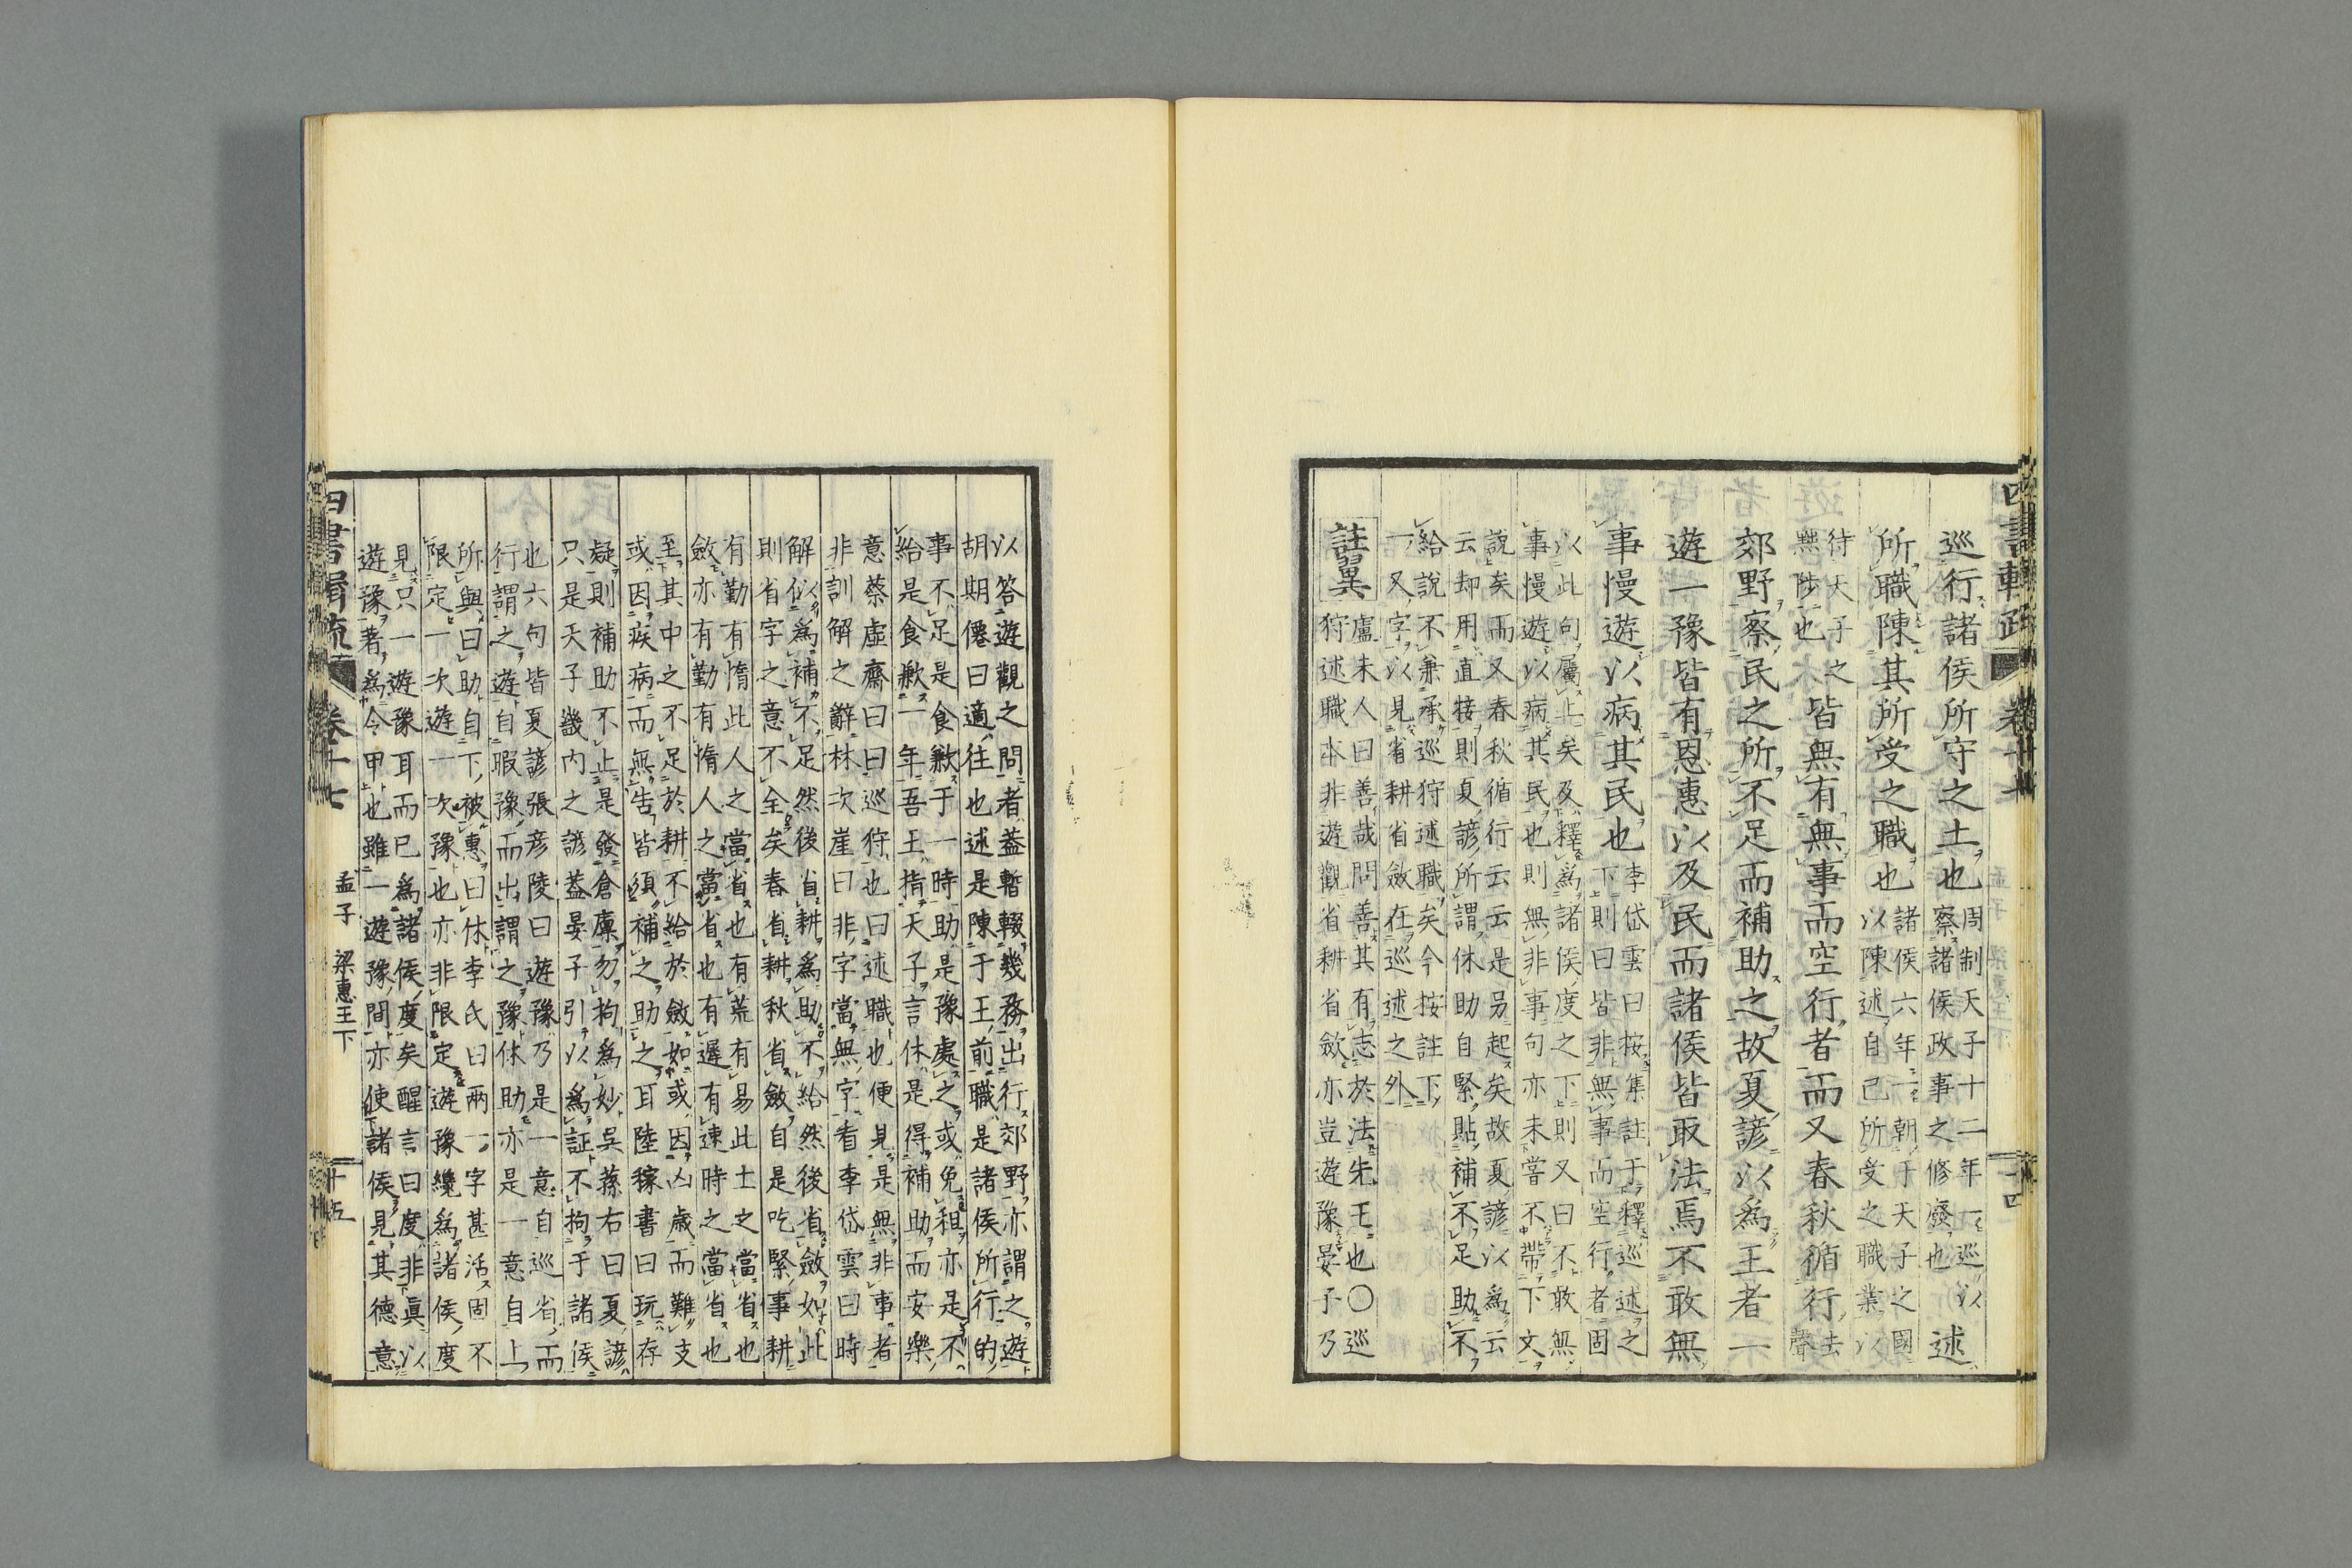 四書輯疏 卷十七
巡行諸侯所守之土也
周制天子十二年一巡以
察諸侯政事之修廢也
述
所職陳其所受之職也
諸侯六年一朝于天子之國
以陳述自己所受之職業以
待天子之
黜陟也
皆無有無事而空行者而又春秋循行
去
聲
郊野察民之所不足而補助之故夏諺以為王者一
遊一豫皆有恩惠以及民而諸侯皆取法焉不敢無
事慢遊以病其民也
李岱雲曰按集註于釋巡述之
下則曰皆非無事而空行者固
以此句屬上矣及釋為諸侯度之下則又曰不敢無
事慢遊以病其民也則無非事句亦未嘗不帶下文
說矣而又春秋循行云云是另起矣故夏諺以為云
云却用直接則夏諺所謂休助自緊貼補不足助不
給說不兼承巡狩述職矣今按註下
一又字以見省耕省斂在巡述之外
註翼
盧未人曰善哉問善其有志於法先王也○巡
狩述職本非遊觀省耕省斂亦豈遊豫晏子乃
以答遊觀之問者蓋暫輟幾務出行郊野亦謂之遊
胡期僊曰適往也述是陳于王前職是諸侯所行的
事不足是食歉于一時助是豫處之或免租亦是不
給是食歉一年吾王指天子言休是得補助而安樂
意蔡虛齋曰曰巡狩也曰述職也便見是無非事者
非訓解之辭林次崖曰非字當無字看李岱雲曰時
解似為補不足然後省耕為助不給然後省斂如此
則省字之意不全矣春省耕秋省斂自是吃緊事耕
有勤有惰此人之當省也有荒有易此土之當省也
斂亦有勤有惰人之當省也有遲有速時之當省也
至其中之不足於耕不給於斂如或因凶歲而難支
或因疾病而無告皆須補之助之耳陸稼書曰玩存
疑則補助不止是發倉廩勿拘為妙吳蓀右曰夏諺
只是天子畿内之諺蓋晏子引以為証不拘于諸侯
也六句皆夏諺張彦陵曰遊豫乃是一意自巡省而
行謂之遊自暇豫而出謂之豫休助亦是一意自上
所與曰助自下被惠曰休李氏曰兩一字甚活固不
限定一次遊一次豫也亦非限定遊豫纔為諸侯度
見只一遊豫耳而已為諸侯度矣醒言曰度非眞以
遊豫著為令甲也雖一遊豫間亦使諸侯見其德意
四書輯疏 卷十七 孟子 梁惠王下 十五